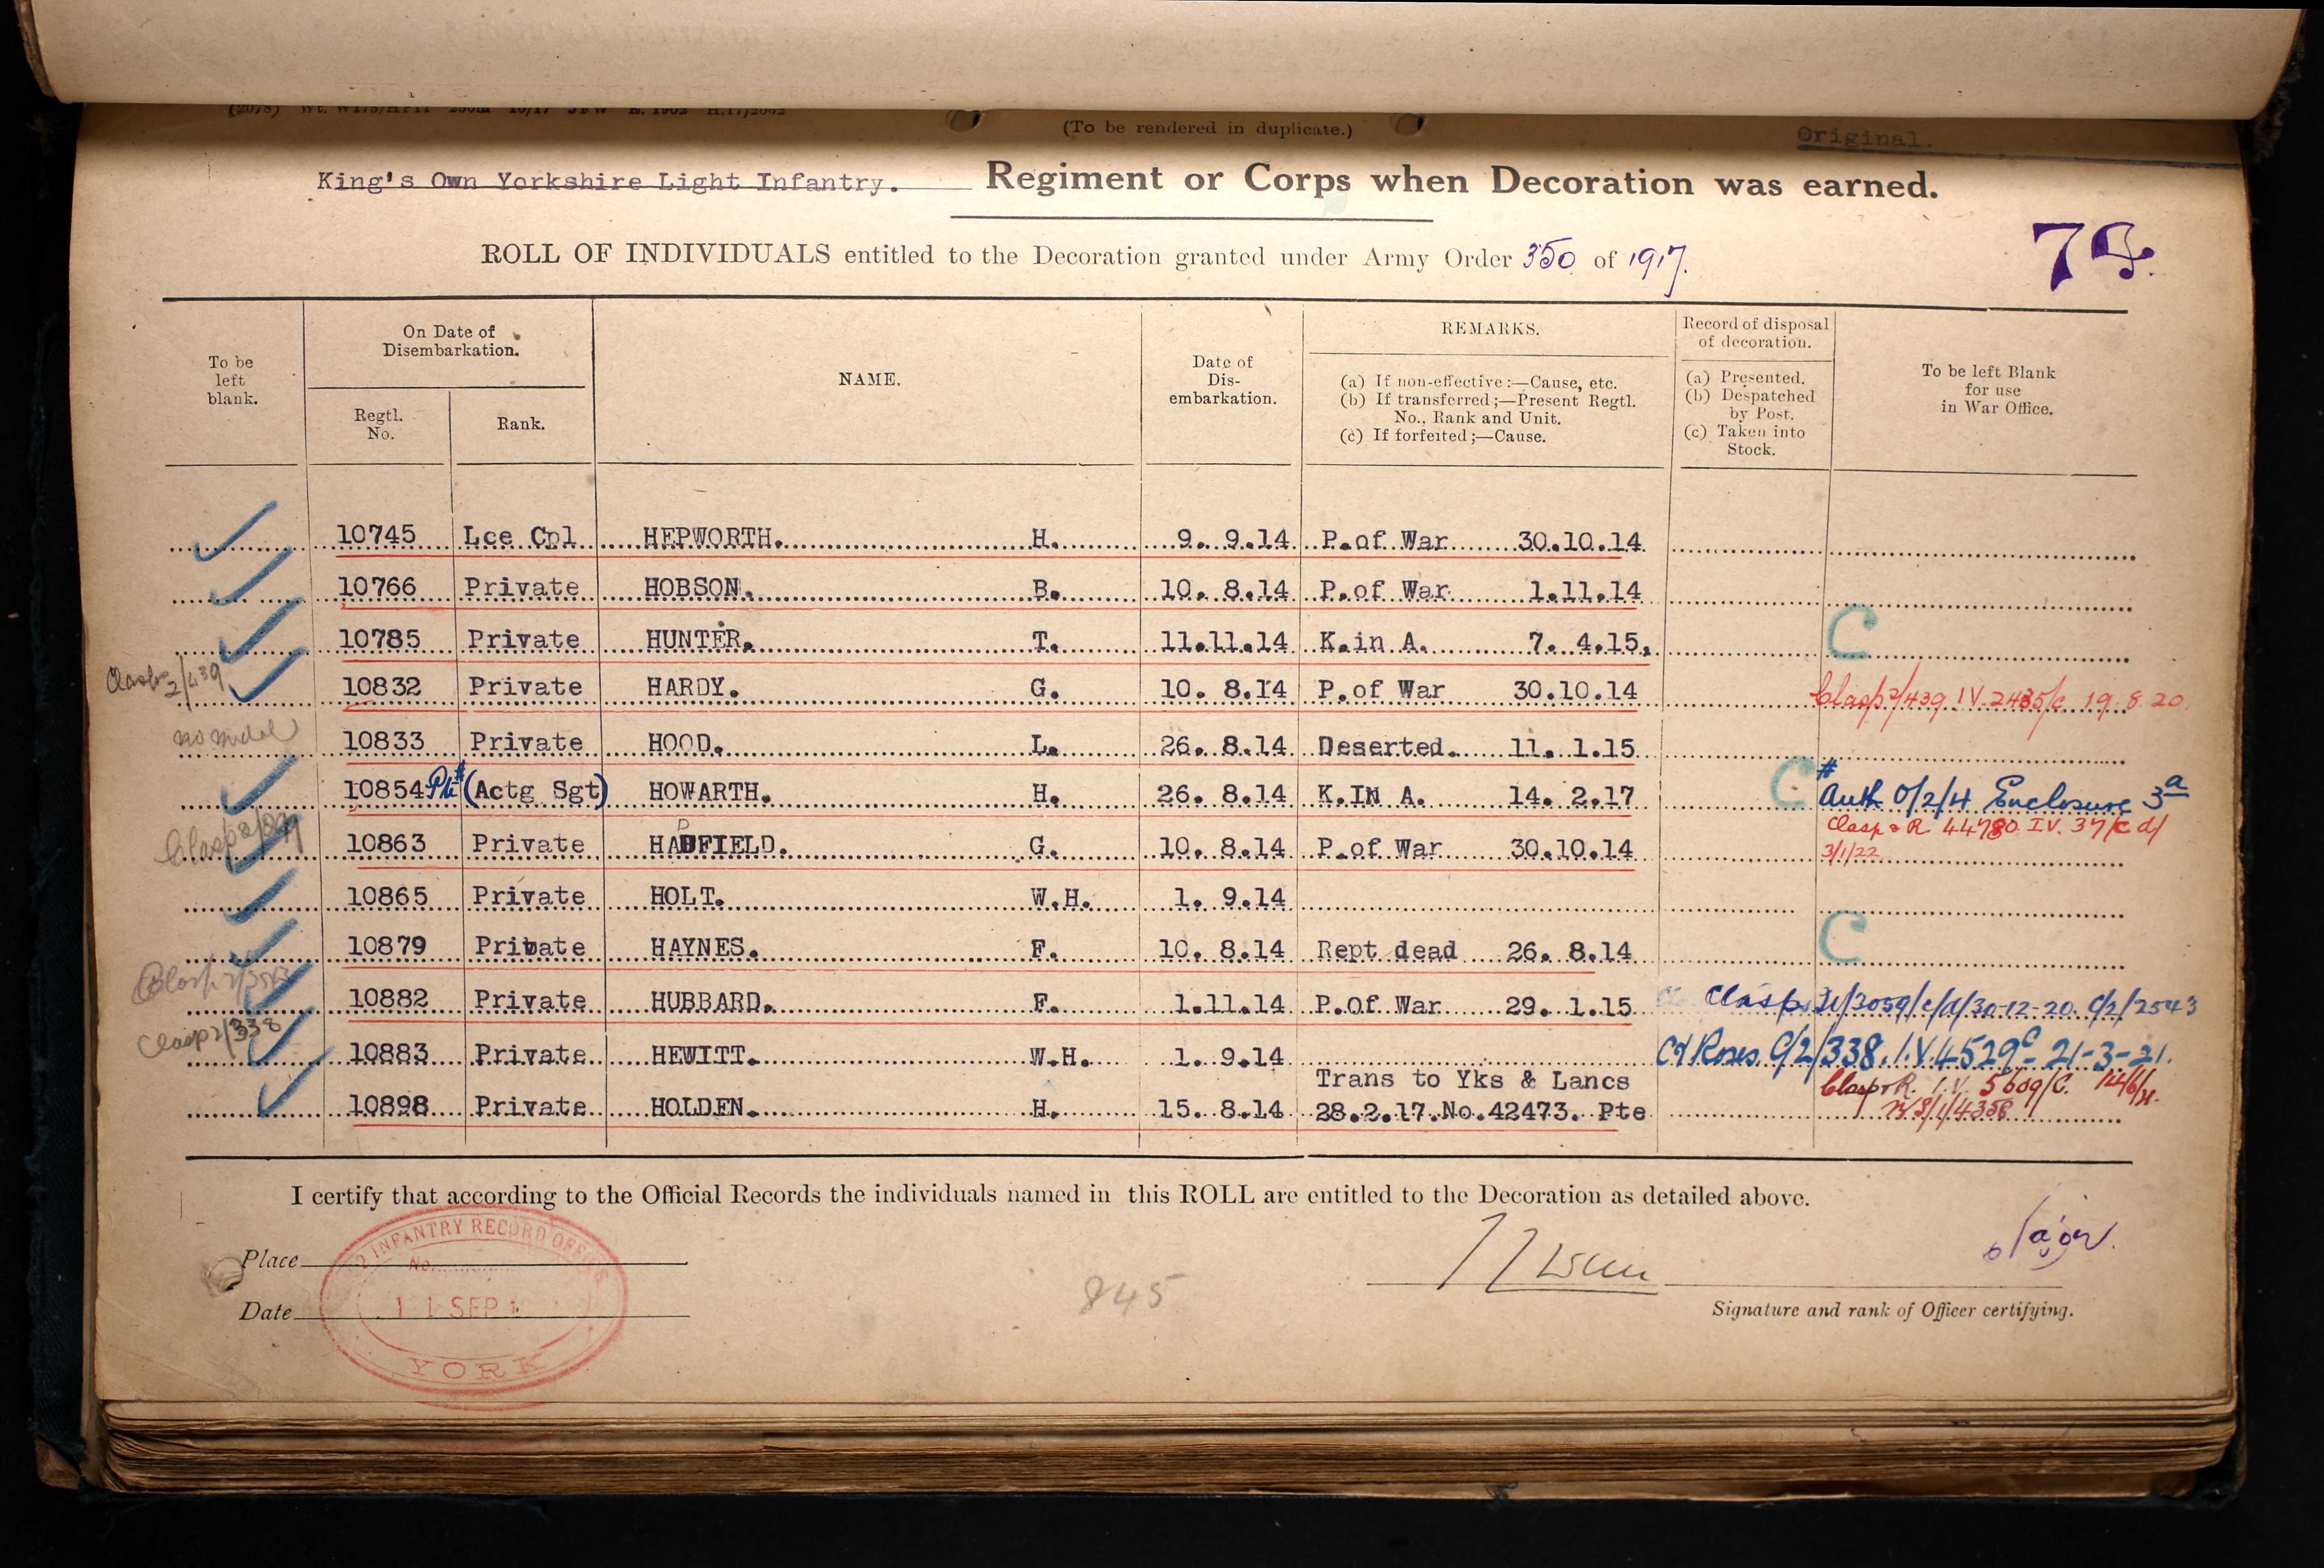 (To be rendered in duplicate.)
Original.
King's Own Yorkshire Light Infantry. Regiment or Corps when Decoration was earned.
74.
ROLL OF INDIVIDUALS entitled to the Decoration granted under Army Order 350 of 1917.
To be left blank.
On Date of Disembarkation.
Regtl. No.
Rank.
NAME.
Date of Dis-embarkation.
REMARKS.
(a) If non-effective :—Cause, etc.
(b) If transferred ;—Present Regtl. No., Rank and Unit.
(c) If forfeited ;—Cause.
Record of disposal of decoration.
(a) Presented.
(b) Despatched by Post.
(c) Taken into Stock.
To be left Blank for use in War Office.
10745 Lce Cpl HEPWORTH. H. 9. 9.14 P.of War 30.10.14
10766 Private HOBSON. B. 10. 8.14 P.of War 1.11.14
10785 Private HUNTER. T. 11.11.14 K.in A. 7. 4.15. C
Clasp 2/439 10832 Private HARDY. G. 10. 8.14 P.of War 30.10.14 Clasp 2/439 IV 2435/c 19.8.20
no medal 10833 Private HOOD. L. 26. 8.14 Deserted. 11. 1.15
10854 Pte # (Actg Sgt) HOWARTH. H. 26. 8.14 K.IN A. 14. 2.17 C # Auth 0/2/4 Enclosure 3a
Clasp 10863 Private HADFIELD. G. 10. 8.14 P.of War 30.10.14 Clasp & R 44780 I.V. 37/c d/ 3/1/22
10865 Private HOLT. W.H. 1. 9.14
10879 Private HAYNES. F. 10. 8.14 Rept dead 26. 8.14 C
Clasp 10882 Private HUBBARD. F. 1.11.14 P.Of War 29. 1.15 Clasp 30-12-20. C/2/2543
Clasp 2/338 10883 Private HEWITT. W.H. 1. 9.14 Cl Roses. C/2/338. I.V. 4529c - 21-3-21.
10898 Private HOLDEN. H. 15. 8.14 Trans to Yks & Lancs
28.2.17.No.42473. Pte Clasp & R. I.V. 5609/C.
I certify that according to the Official Records the individuals named in this ROLL are entitled to the Decoration as detailed above.
INFANTRY RECORD OFFICE
No.
11 SEP
YORK
Place
Date
845
Major.
Signature and rank of Officer certifying.